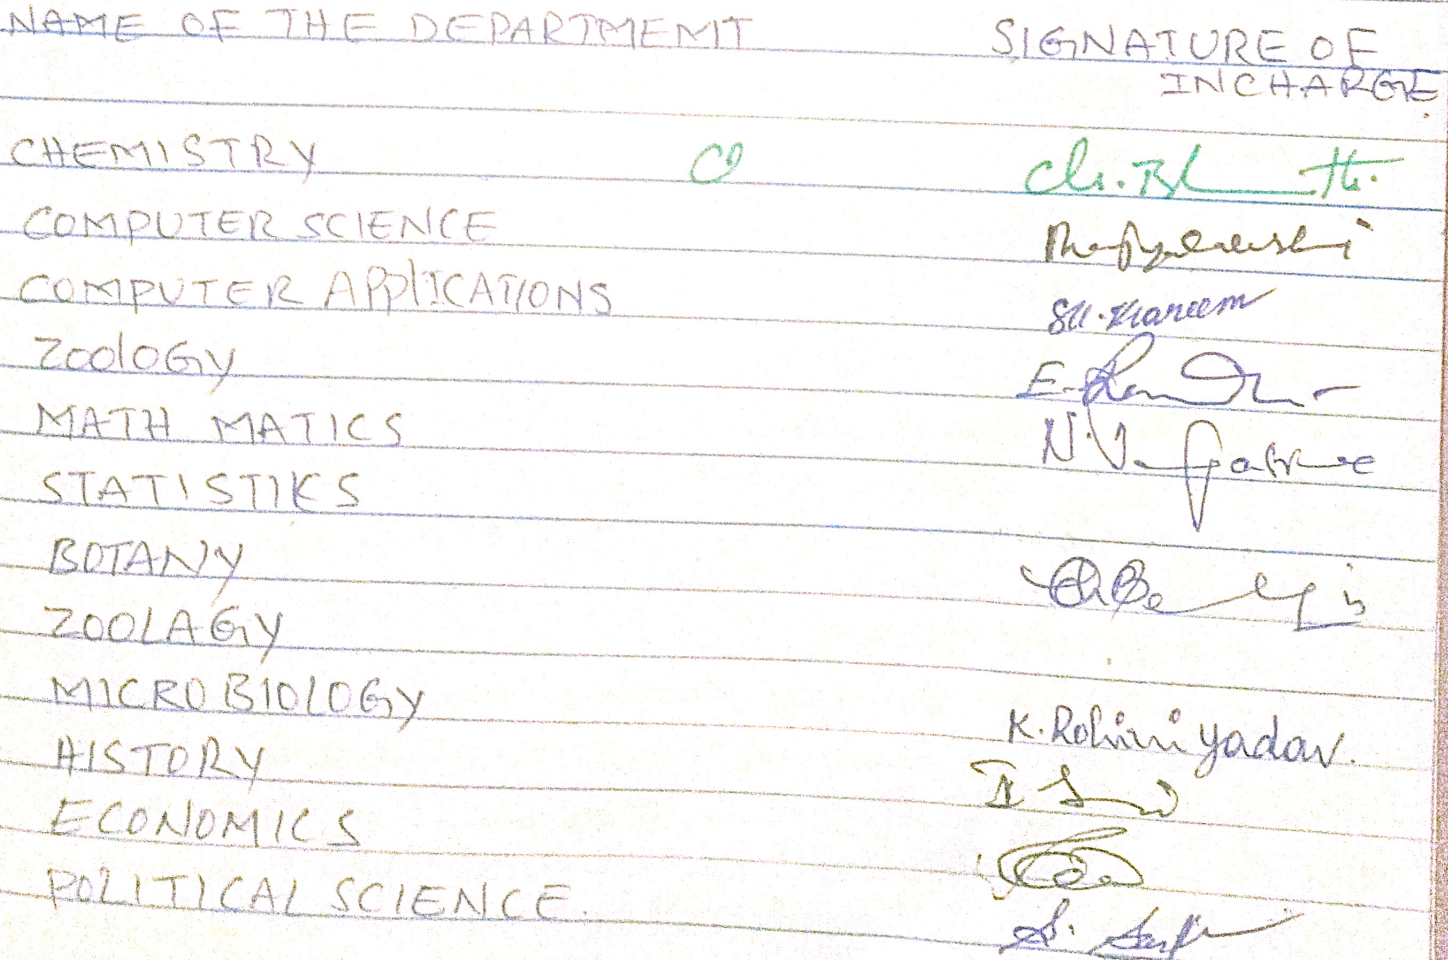 NAME OF THE DEPARTMEMT SIGNATURE OF
INCHARGE
CHEMISTRY Ch.
COMPUTER SCIENCE
COMPUTER APPlICATIONS SK. Kareem
ZoologY E.
MATH MATICS N.V.
STATISTIKS
BOTANY
ZOOLAGY
MICRO BIOLOGY K. Rohini yadav.
HISTORY
ECONOMICS
POLITICAL SCIENCE. S.